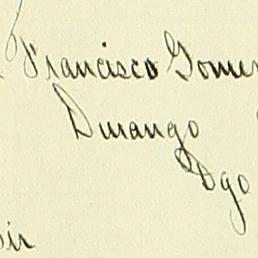 Francisco Gomez
Durango
Dgo
Sir